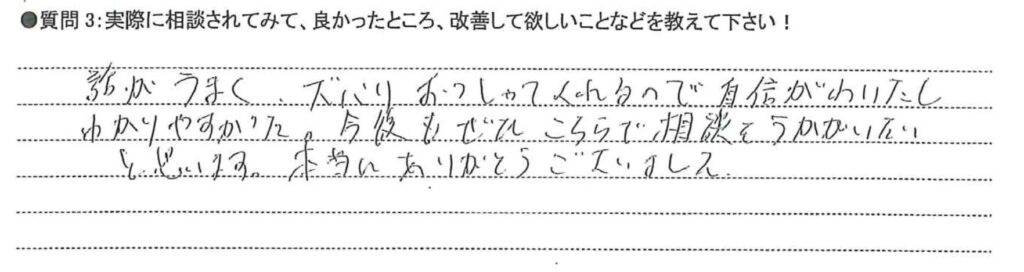 ●質問3:実際に相談されてみて、良かったところ、改善して欲しいことなどを教えて下さい!
話がうまく、ズバリおっしゃてくれるので自信がわいたし
わかりやすかった。今後もぜひこちらで相談をうかがいたい
と思います。本当にありがとうございました。